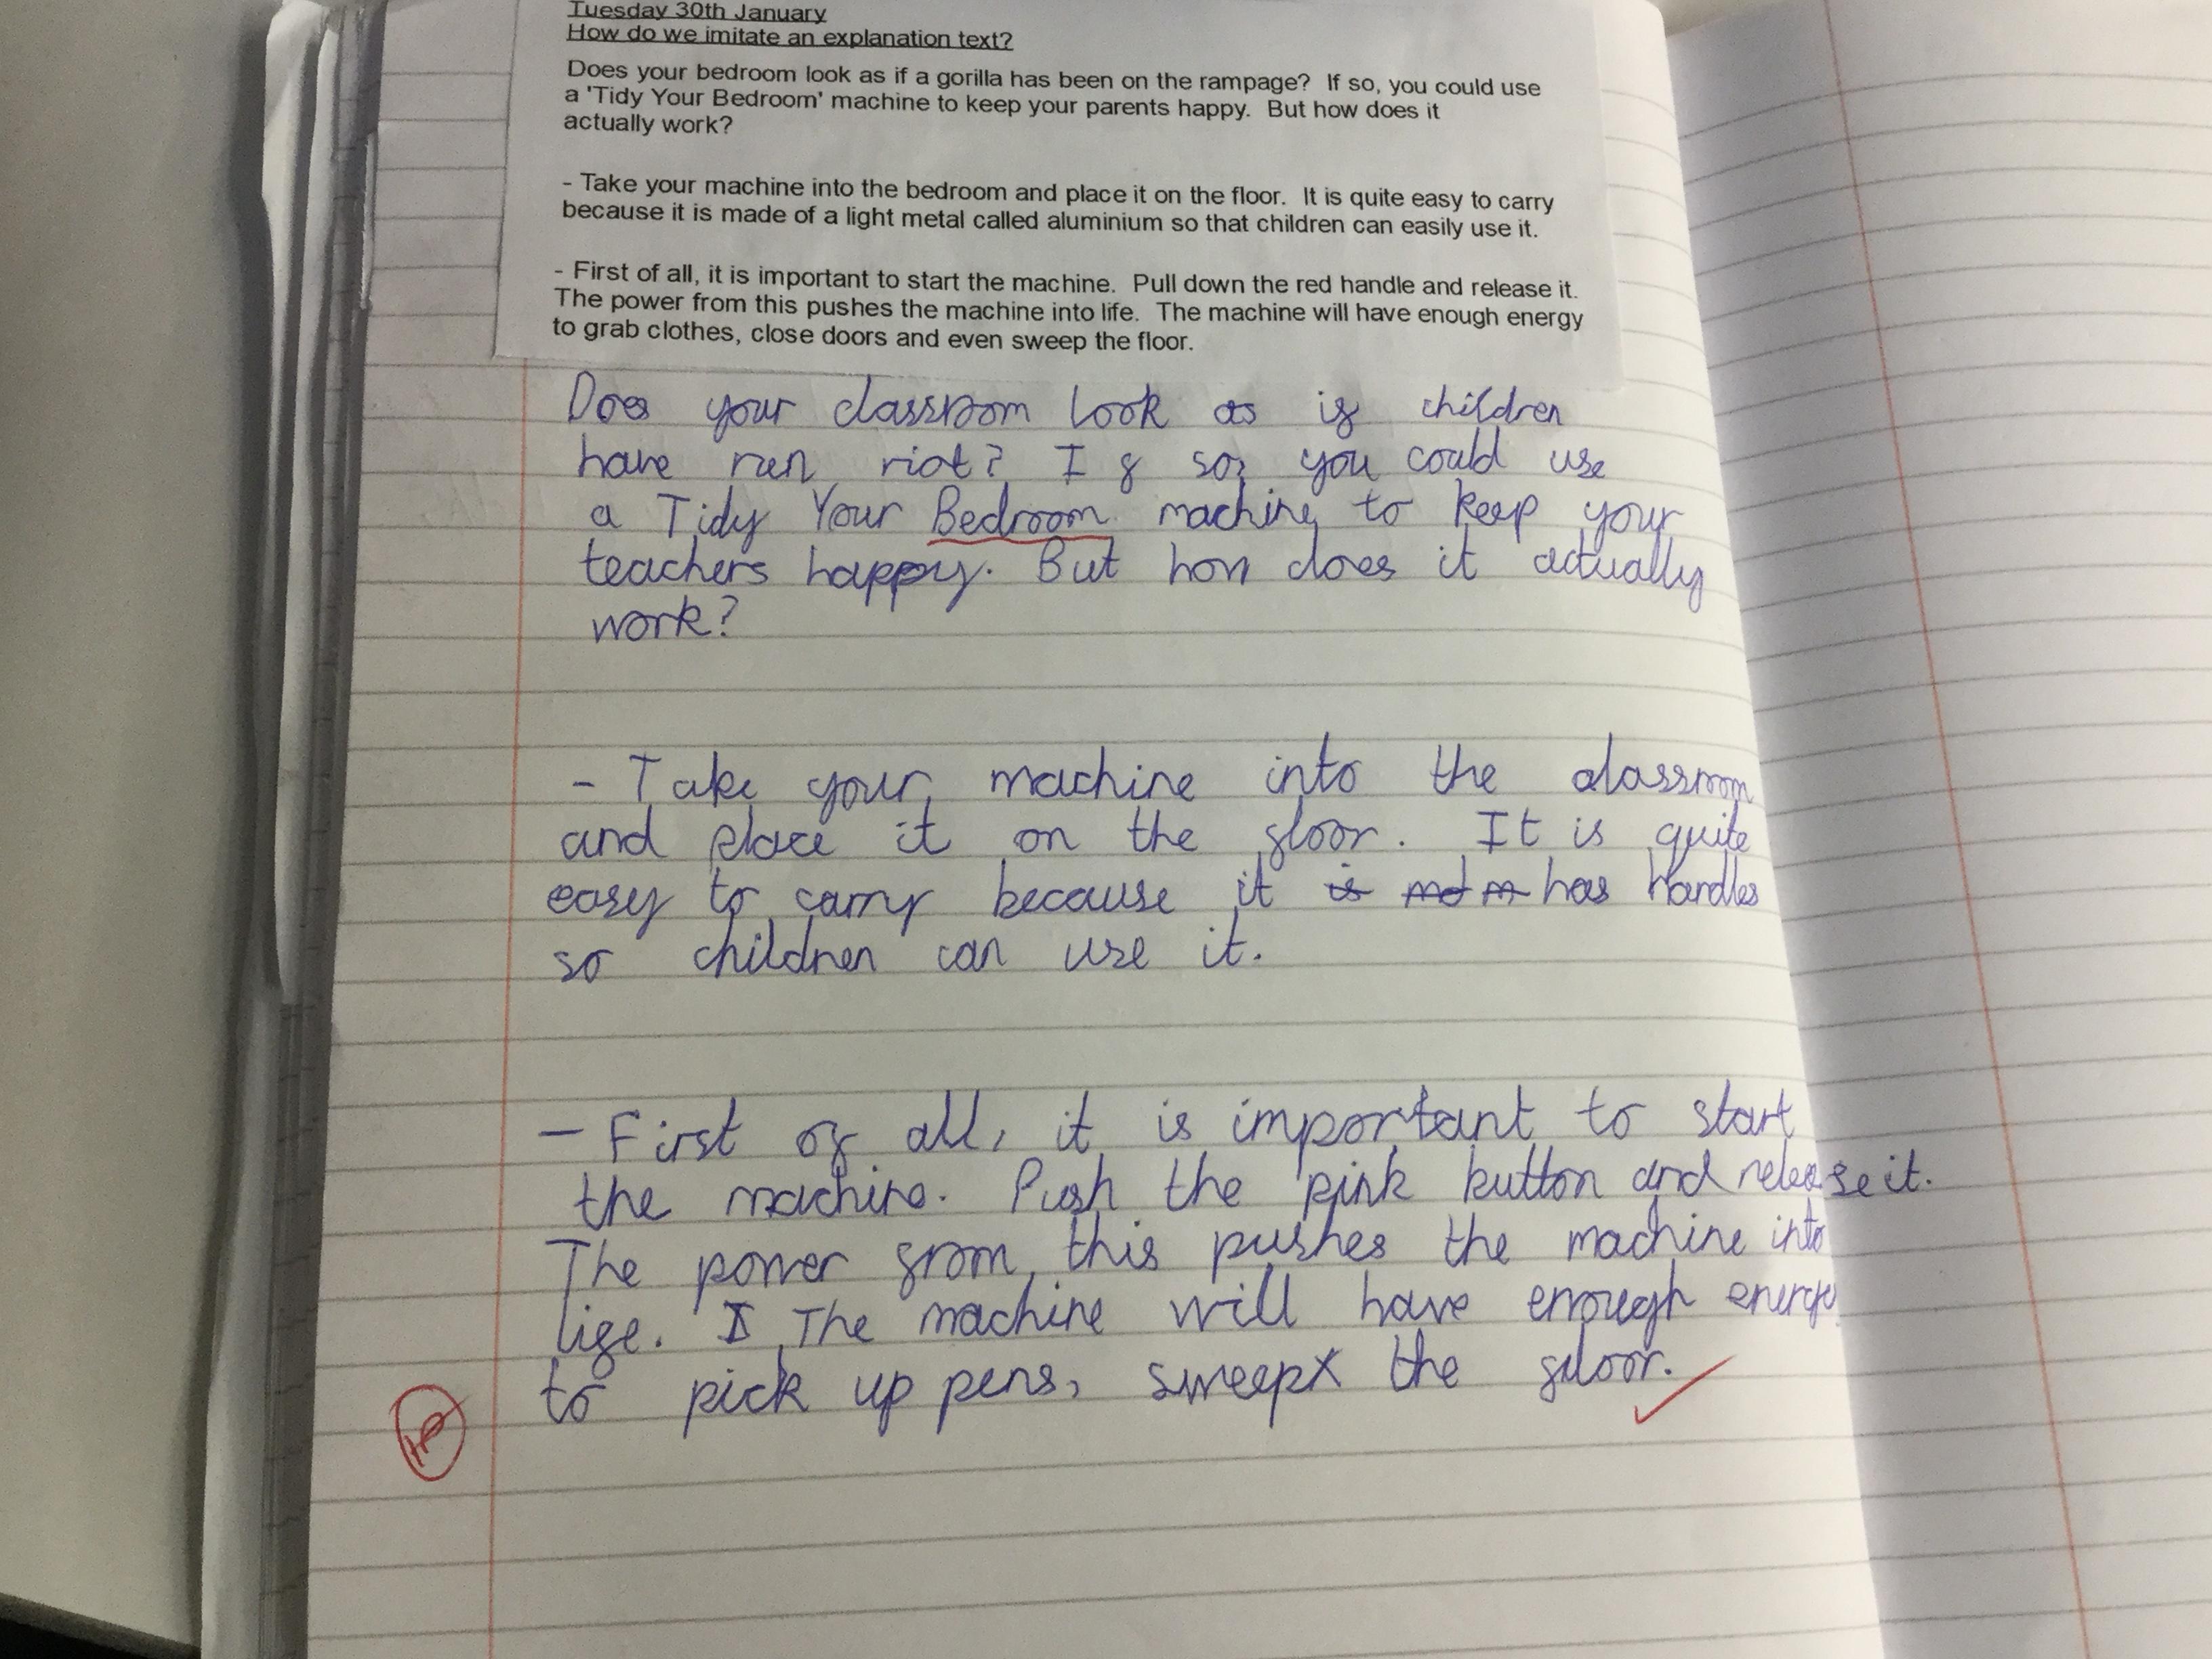 Tuesday 30th January
How do we imitate an explanation text?
Does your bedroom look as if a gorilla has been on the rampage? If so, you could use
a 'Tidy Your Bedroom' machine to keep your parents happy. But how does it
actually work?
- Take your machine into the bedroom and place it on the floor. It is quite easy to carry
because it is made of a light metal called aluminium so that children can easily use it.
- First of all, it is important to start the machine. Pull down the red handle and release it.
The power from this pushes the machine into life. The machine will have enough energy
to grab clothes, close doors and even sweep the floor.
Does your classroom look as if children
have run riot? If so, you could use
a Tidy Your Bedroom machine to keep your
teachers happy. But how does it actually
work?
- Take your machine into the classroom
and place it on the floor. It is quite
easy to carry because it is has handles
so children can use it.
- First of all, it is important to start
the machine. Push the pink button and release it.
The power from this pushes the machine into
life. The machine will have enough energy
to pick up pens, sweep the floor.